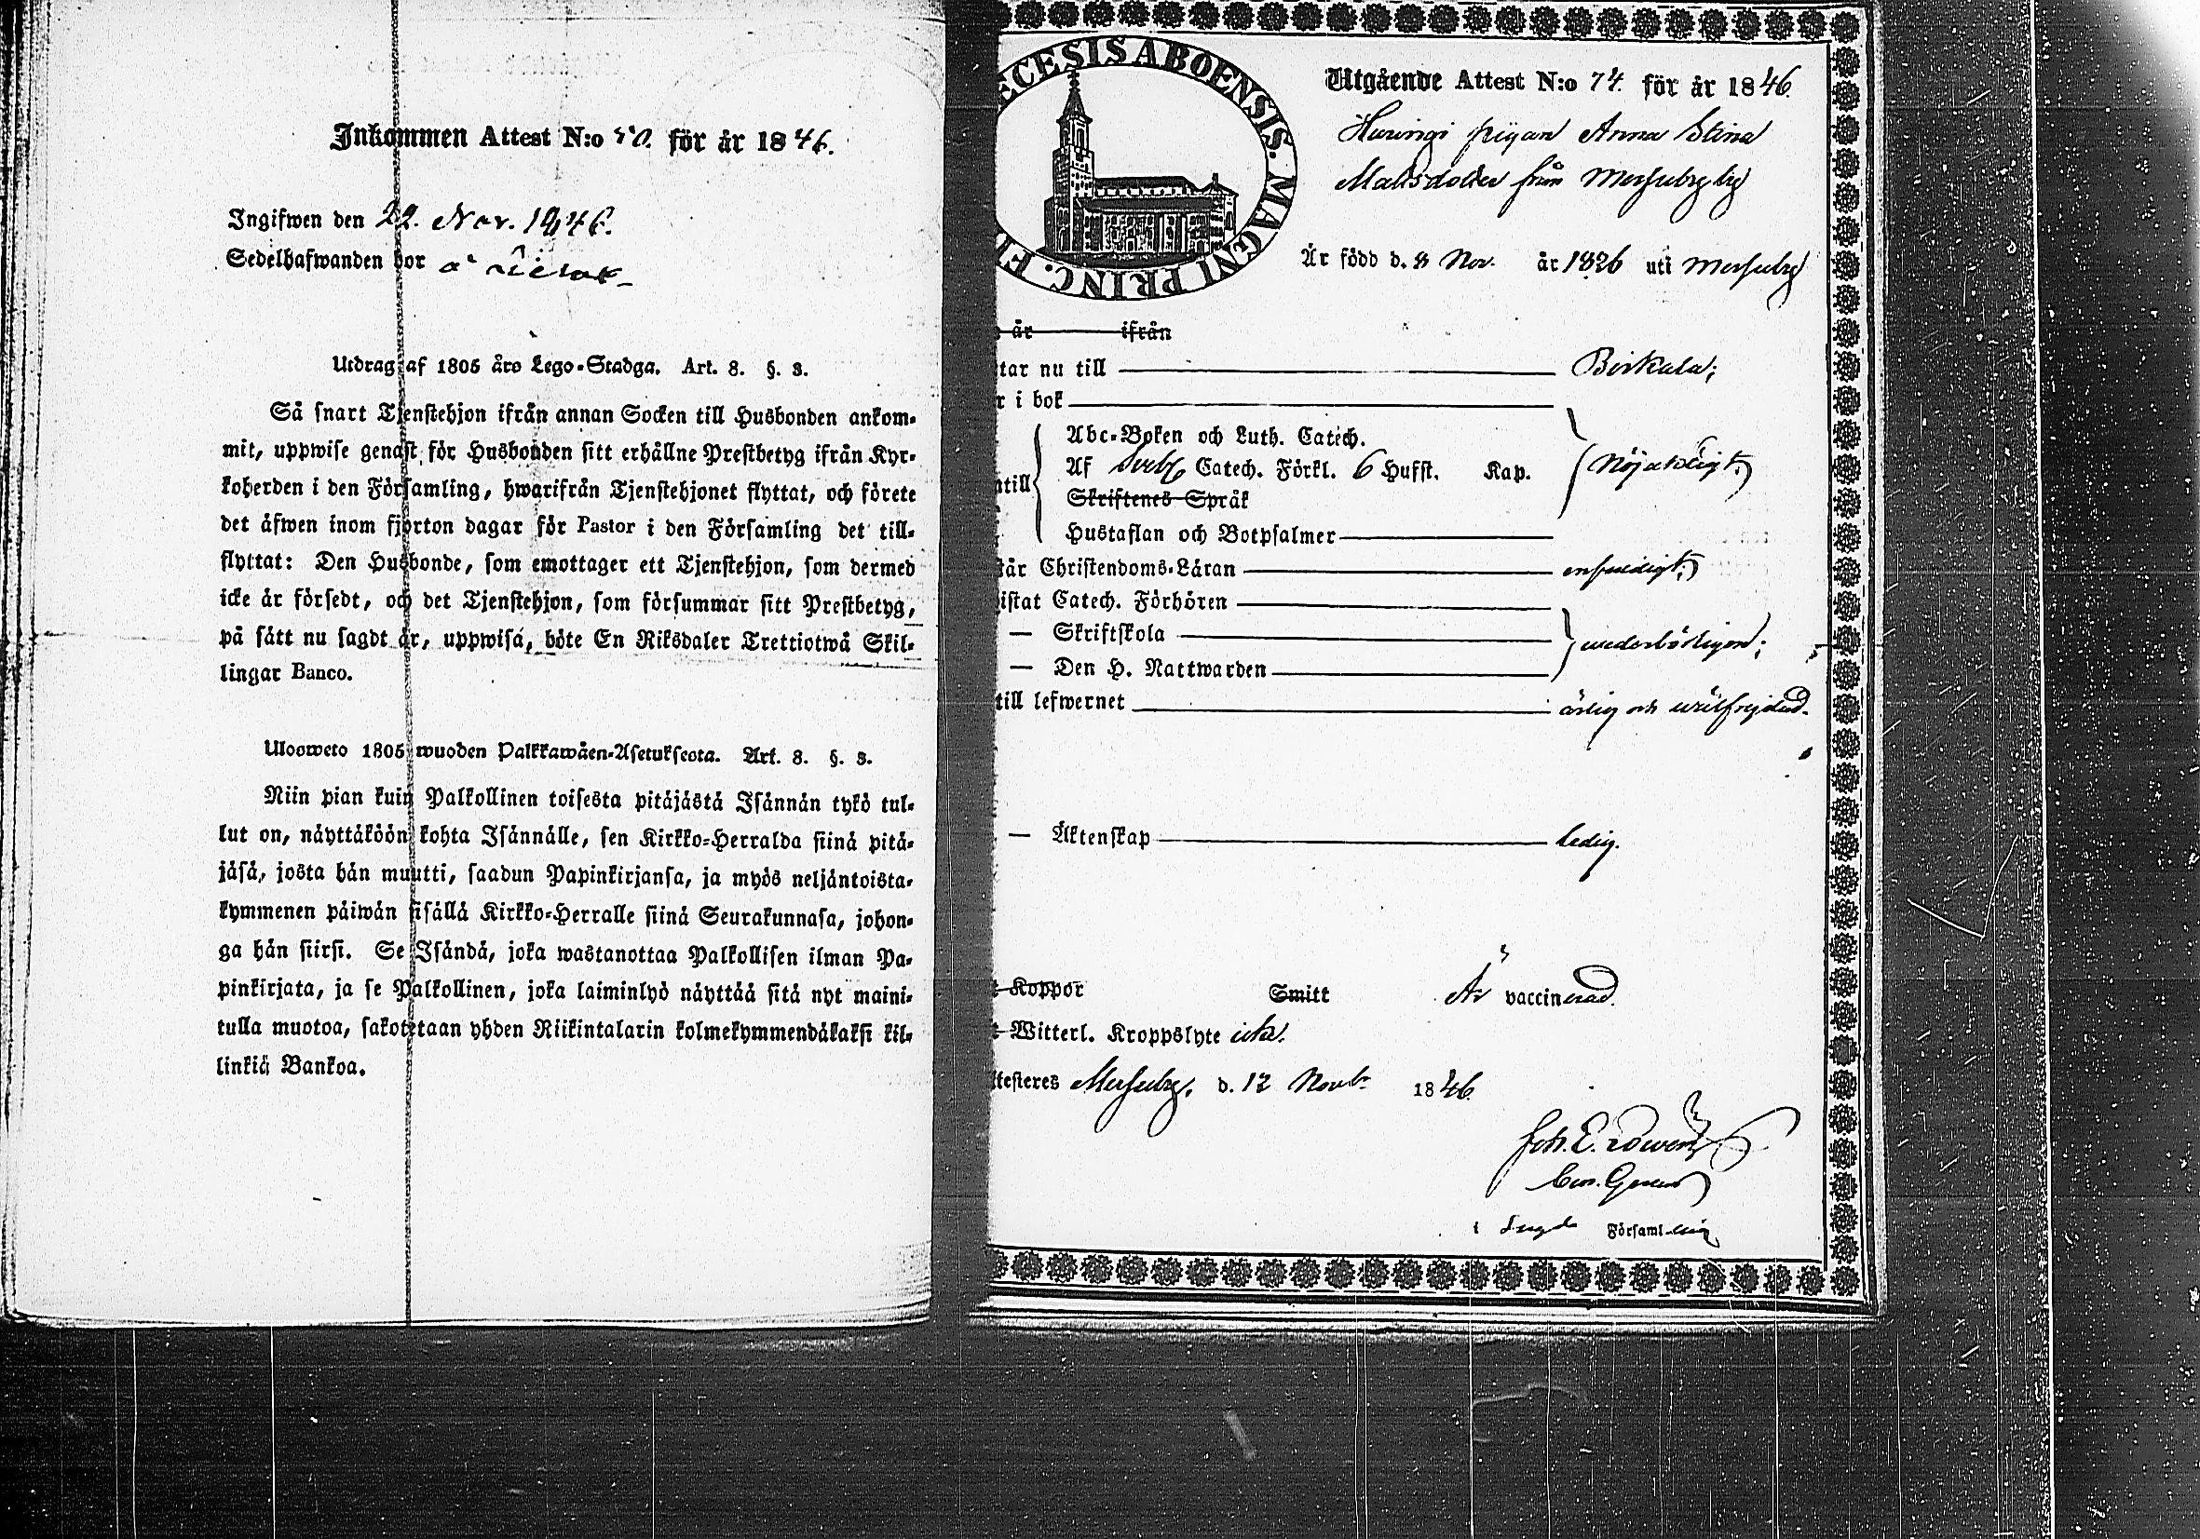 Inkommen Attest N:o 50. för år 1846.
Ingifwen den 22. Nov. 1846.
Sedelhafwanden bor å
Utdrag af 1805 års Lego-Stadga. Art. 8. §. 3.
Så snart Tjenstehjon ifrån annan Socken till Husbonden ankom-
mit, uppwise genast för Husbonden sitt erhållne Prestbetyg ifrån Kyr-
koherden i den Församling, hwarifrån Tjenstehjonet flyttat, och förete
det äfwen inom fjorton dagar för Pastor i den Församling det till-
flyttat: Den Husbonde, som emottager ett Tjenstehjon, som dermed
icke är försedt, och det Tjenstehjon, som försummar sitt Prestbetyg,
på sätt nu sagdt är, uppwisa, böte En Riksdaler Trettiotwå Skil-
lingar Banco.
Ulosweto 1805 wuoden Palkkawäen-Asetuksesta. Art. 8. §. 3.
Niin pian kuin Palkollinen toisesta pitäjästä Isännän tykö tul-
lut on, näyttäköön kohta Isännälle, sen Kirkko-Herralda siinä pitä-
jäsä, josta hän muutti, saadun Papinkirjansa, ja myös neljäntoista-
kymmenen päiwän sisällä Kirkko-Herralle siinä Seurakunnasa, johon-
ga hän siirsi. Se Isändä, joka wastanottaa Palkollisen ilman Pa-
pinkirjata, ja se Palkollinen, joka laiminlyö näyttää sitä nyt maini-
tulla muotoa, sakotetaan yhden Riikintalarin kolmekymmendäkaksi kil-
linkiä Bankoa.
ECESIS ABOENSIS. MAGNI PRINC. F
Utgående Attest N:o 74. för år 1846.
pigan Anna Stina
från Mersuby by
Är född d. 8 Nov. år 1826 uti Mersuby
är ifrån
tar nu till Birkala;
r i bok
Abc-Boken och Luth. Catech.
Af Sveb. Catech. Förkl. 6 Hufst. Kap. Nöjaktigt;
ntill
Skriftenes Språk
Hustaflan och Botpsalmer
tår Christendoms-Läran enfaldigt;
istat Catech. Förhören
— Skriftskola wederbörligen;
— Den H. Nattwarden
till lefwernet ärlig och wälfrejdad.
— Äktenskap ledig.
t Koppor Smitt Är vaccinerad.
t Witterl. Kroppslyte icke.
ttesteres Mersuby. d. 12 Novbr 1846.
Joh. E.
i Församling